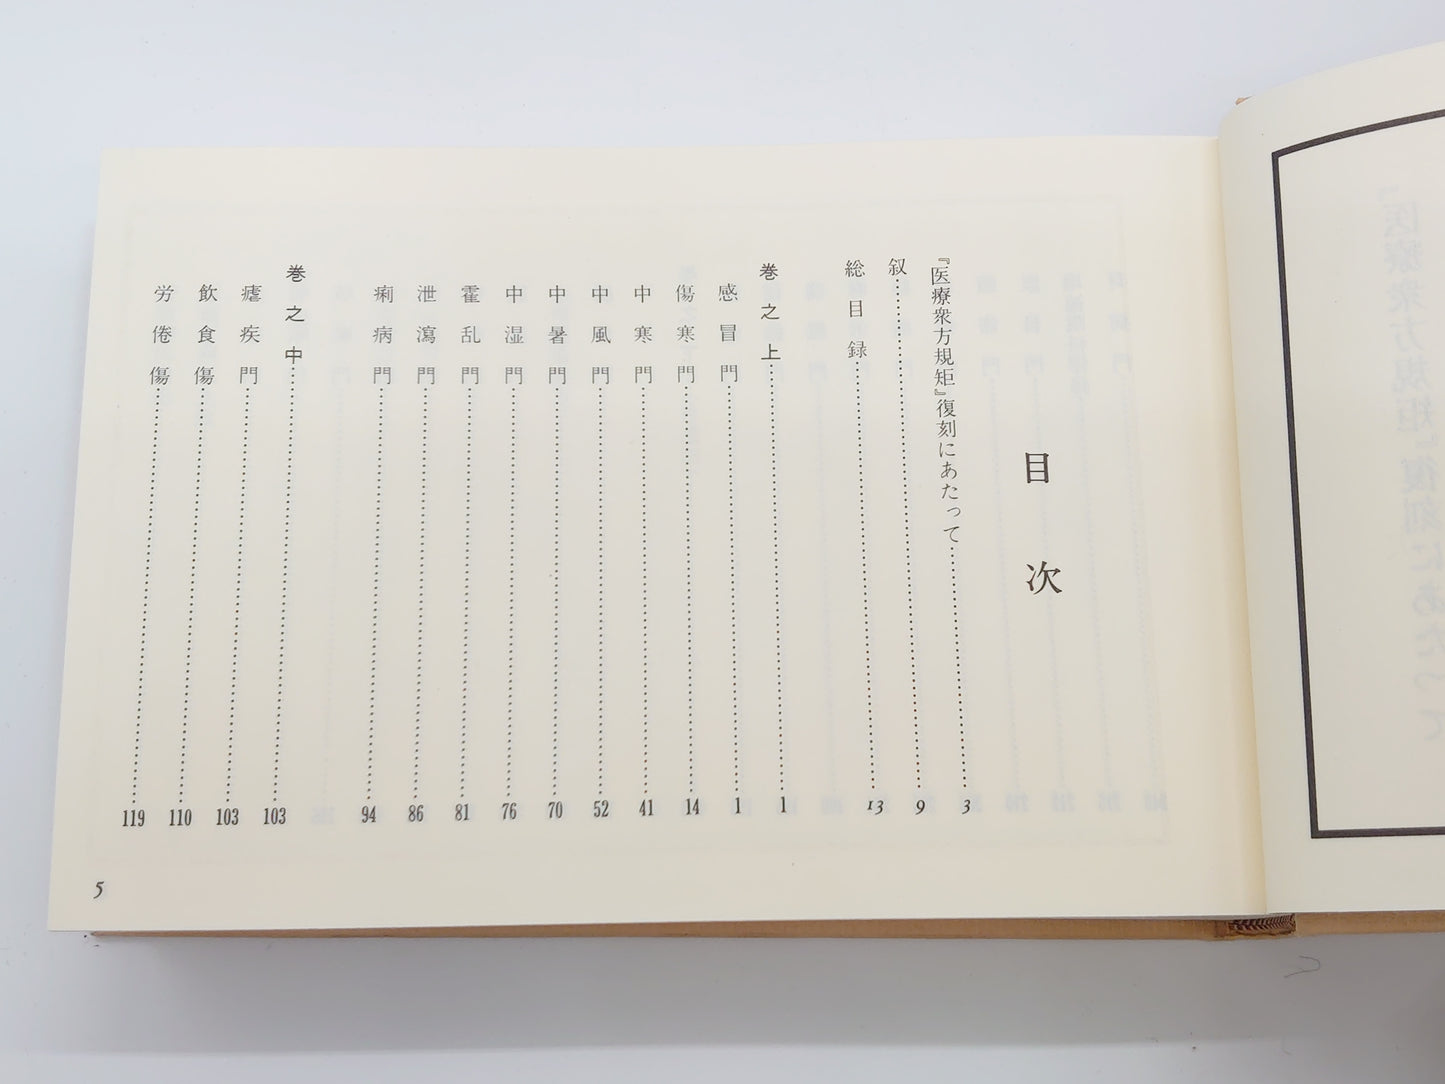 目次
『医療衆方規矩』復刻にあたって……3
叙……9
総目録……13
巻之上……1
感冒門……1
傷寒門……14
中寒門……41
中風門……52
中暑門……70
中湿門……76
霍乱門……81
泄瀉門……86
痢病門……94
巻之中……103
瘧疾門……103
飲食傷……110
労倦傷……119
5